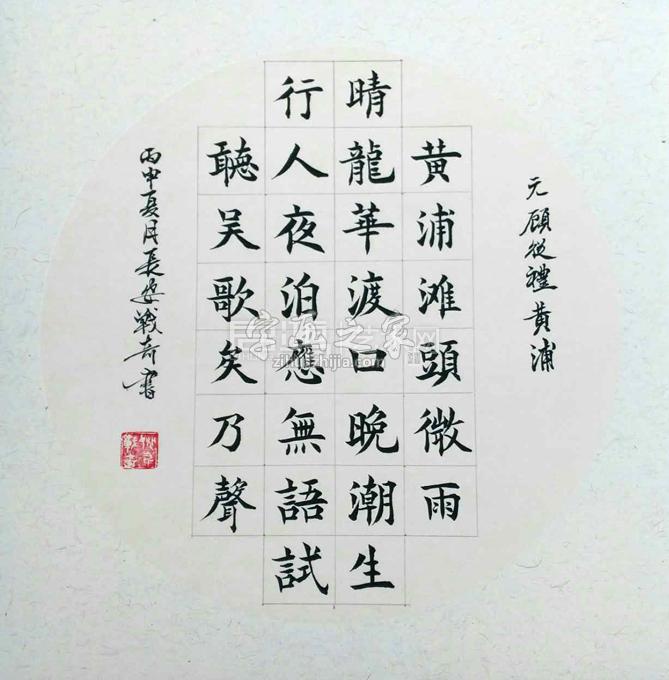 元顧從禮黃浦
黃浦滩頭微雨
晴龍華渡口晚潮生
行人夜泊應無語試
聽吴歌矣乃聲
丙申夏月長安戰奇書
字画之家网